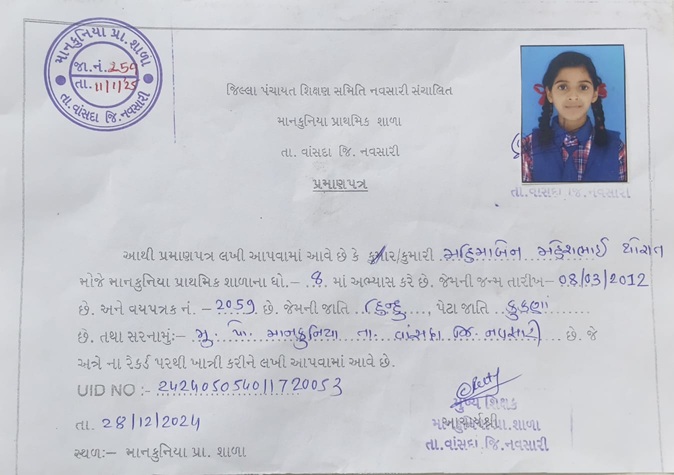 માનકુનિયા પ્રા. શાળા
જા.નં. 259
તા. 11/1/25
તા. વાંસદા જિ. નવસારી
જિલ્લા પંચાયત શિક્ષણ સમિતિ નવસારી સંચાલિત
માનકુનિયા પ્રાથમિક શાળા
તા. વાંસદા જિ. નવસારી
તા. વાંસદા જિ. નવસારી
પ્રમાણપત્ર
આથી પ્રમાણપત્ર લખી આપવામાં આવે છે કે કુમાર/કુમારી મહિમાબેન મહેશભાઈ થોરાત
મોજે માનકુનિયા પ્રાથમિક શાળાના ધો.– 8 માં અભ્યાસ કરે છે. જેમની જન્મ તારીખ– 08/03/2012
છે. અને વયપત્રક નં. – 2059 છે. જેમની જાતિ હિન્દુ, પેટા જાતિ કુકણા
છે. તથા સરનામું:– મુ. પો. માનકુનિયા તા. વાંસદા જિ. નવસારી છે. જે
અત્રે ના રેકર્ડ પરથી ખાત્રી કરીને લખી આપવામાં આવે છે.
UID NO :- 242405054011720053
મુખ્ય શિક્ષક
તા. 28/12/2024
આચાર્યશ્રી
તા. વાંસદા જિ. નવસારી
સ્થળ:– માનકુનિયા પ્રા. શાળા